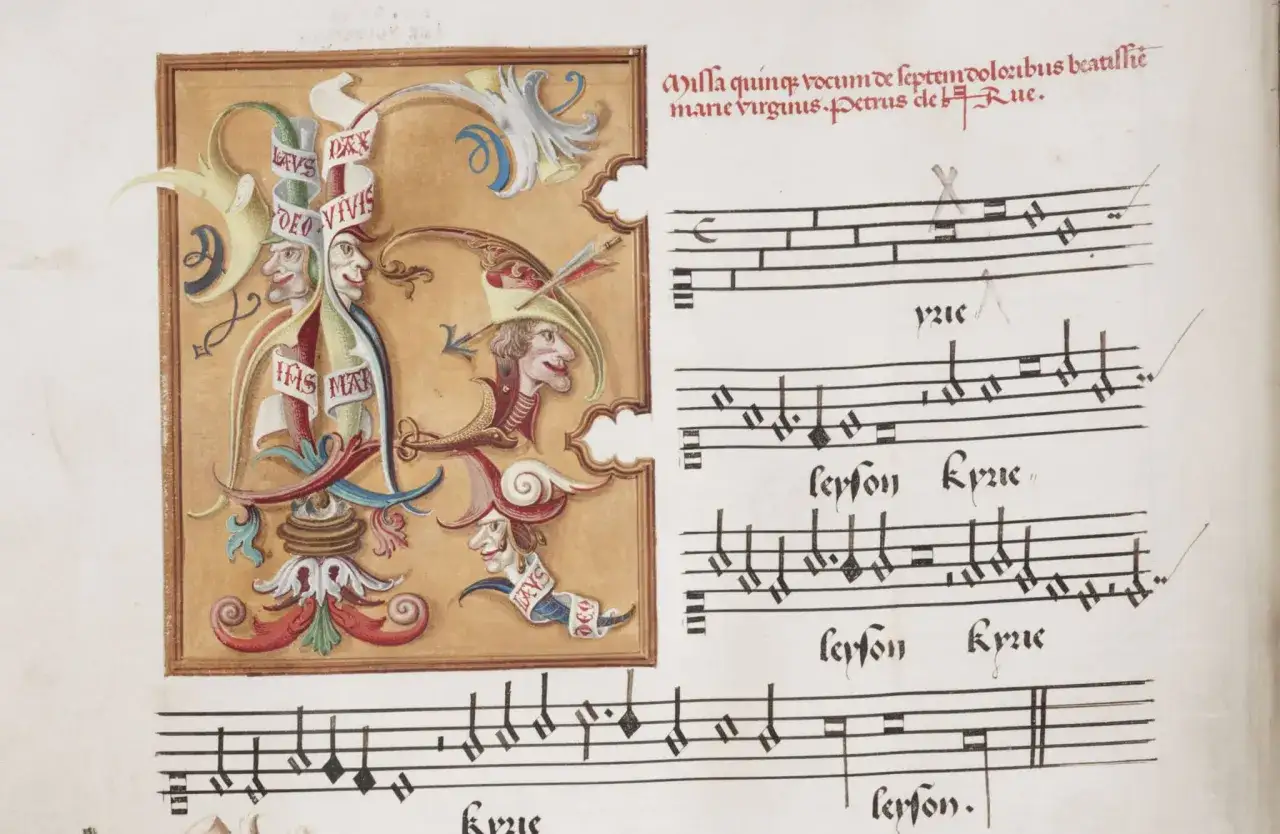 LAVS PAX
DEO VIVIS
IHS MAR
LAVS
DEO
Missa quinqꝫ vocum de septem doloribus beatissīe
marie virginis. Petrus de Rue.
yrie
leyson Kyrie
leyson Kyrie
Kyrie leyson.